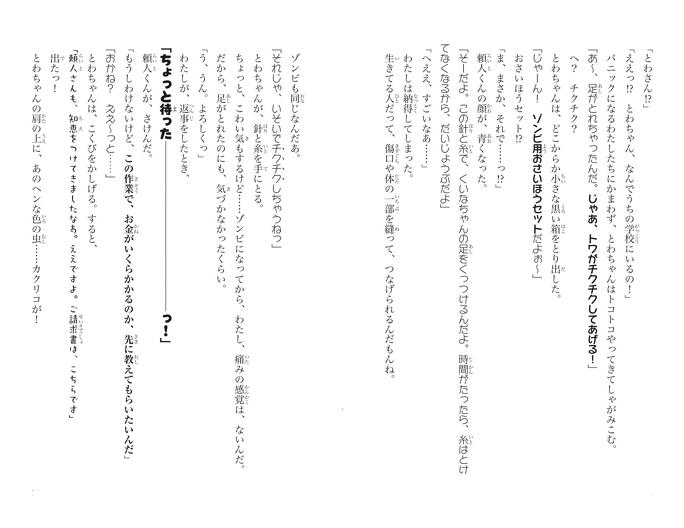 「とわさん!?」
「ええっ!? とわちゃん、なんでうちの学校にいるの!」
パニックになるわたしたちにかまわず、とわちゃんはトコトコやってきてしゃがみこむ。
「あ〜、足がとれちゃったんだ。じゃあ、トワがチクチクしてあげる!」
へ? チクチク?
とわちゃんは、どこからか小さな黒い箱をとり出した。
「じゃーん! ゾンビ用おさいほうセットだよぉ〜」
おさいほうセット!?
「ま、まさか、それで……っ!?」
頼人くんの顔が、青くなった。
「そーだよ。この針と糸で、くいなちゃんの足をくっつけるんだよ。時間がたったら、糸はとけ
てなくなるから、だいじょうぶだよ」
「へええ、すごいなあ……」
わたしは納得してしまった。
生きてる人だって、傷口や体の一部を縫って、つなげられるんだもんね。
ゾンビも同じなんだあ。
「それじゃ、いそいでチクチクしちゃうねっ」
とわちゃんが、針と糸を手にとる。
ちょっと、こわい気もするけど……ゾンビになってから、わたし、痛みの感覚は、ないんだ。
だから、足がとれたのにも、気づかなかったくらい。
「う、うん。よろしくっ」
わたしが、返事をしたとき、
「ちょっと待った――――――っ!」
頼人くんが、さけんだ。
「もうしわけないけど、この作業で、お金がいくらかかるのか、先に教えてもらいたいんだ」
「おかね? ええ〜っと……」
とわちゃんは、こくびをかしげる。すると、
「頼人さんも、知恵をつけてきましたなあ。ええですよ。ご請求書は、こちらです」
出たっ!
とわちゃんの肩の上に、あのヘンな色の虫……カクリコが!